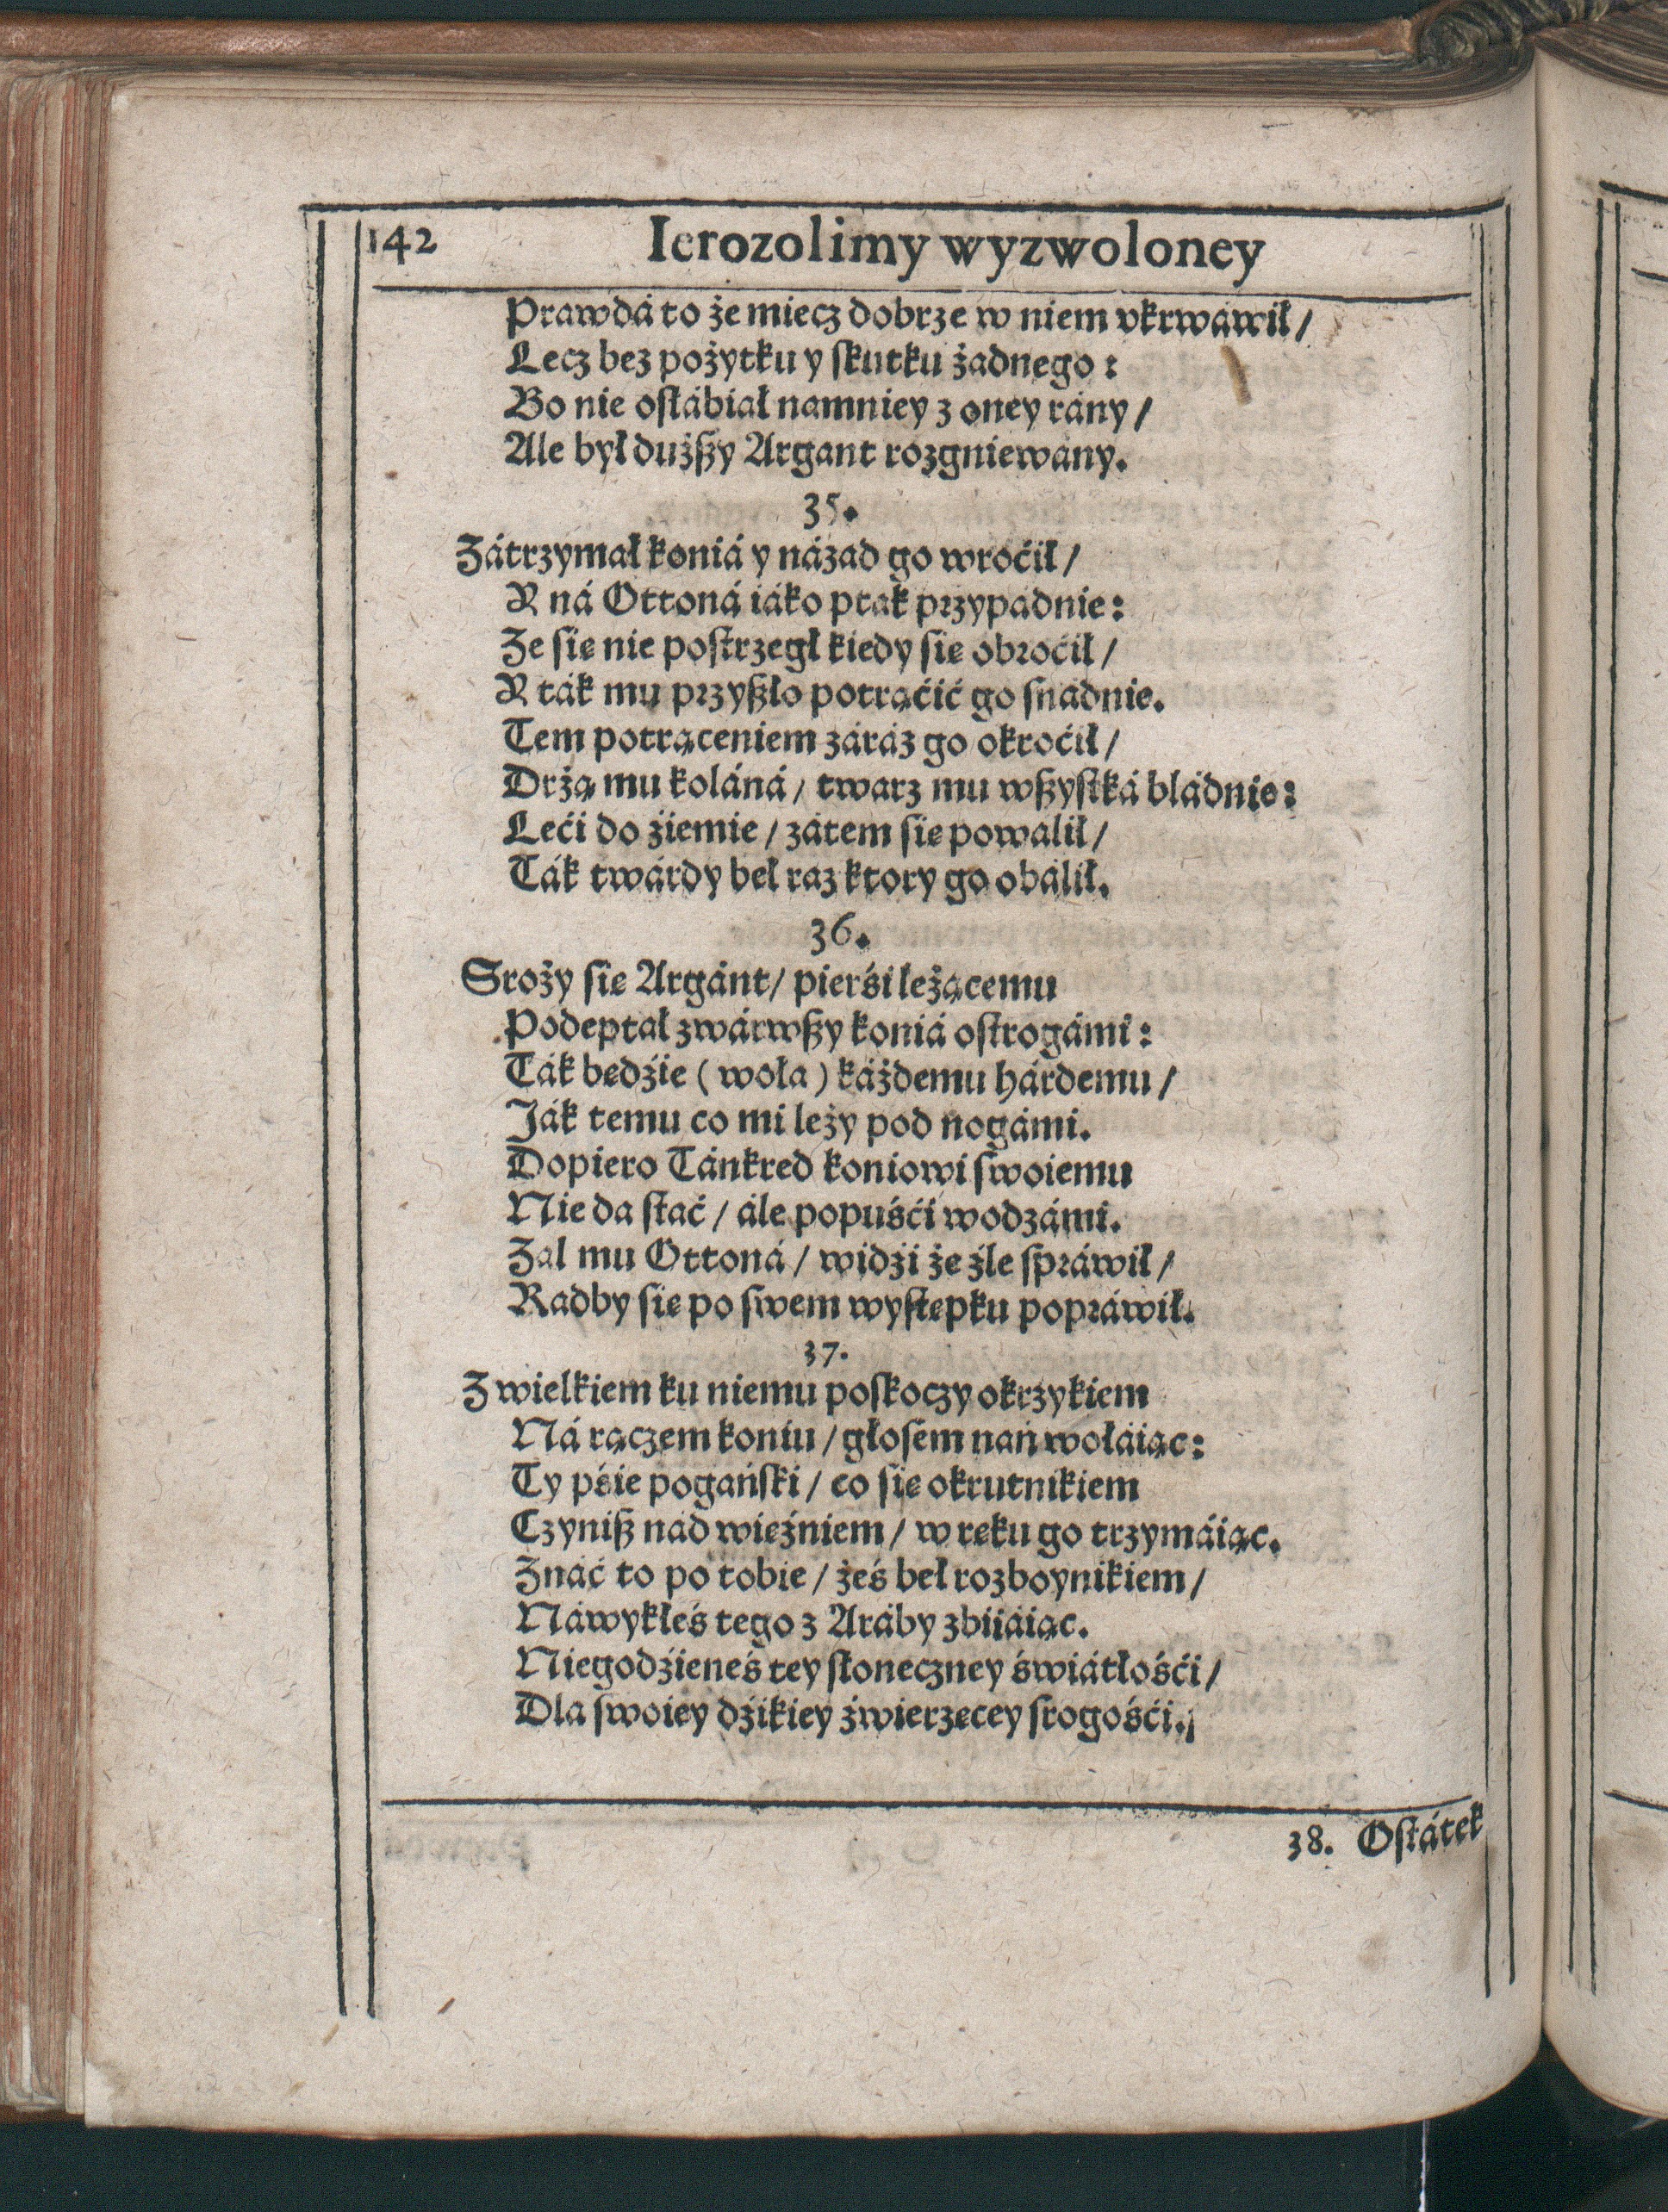 142 Ierozolimy wyzwoloney
Prawdá to że miecz dobrze w niem vkrwáwił /
Lecz bez pożytku y ſkutku żadnego :
Bo nie oſłábiał namniey z oney rány /
Ale był dużßy Argant rozgniewány.
35.
Zátrzymał koniá y názad go wroćił /
Y ná Ottoná iáko ptak przypádnie :
Ze ſię nie poſtrzegł kiedy ſię obroćił /
Y ták mu przyßło potrąćić go ſnádnie.
Tem potrąceniem záráz go okroćił /
Drżą mu koláná / twarz mu wßyſtká bládnie :
Leći do źiemie / zátem ſię powalił /
Ták twárdy beł raz ktory go obálił.
36.
Sroży ſię Argánt / pierśi leżącemu
Podeptał zwárwßy koniá oſtrogámi :
Ták będźie ( woła ) káżdemu hárdemu /
Ják temu co mi leży pod nogámi.
Dopiero Tánkred koniowi ſwoiemu
Nie da ſtać / ále popuśći wodzámi.
Zal mu Ottoná / widźi że źle ſpráwił /
Radby ſię po ſwem wyſtępku popráwił.
37.
Z wielkiem ku niemu poſkoczy okrzykiem
Ná rączem koniu / głoſem nań wołáiąc :
Ty pśie pogáńſki / co ſię okrutnikiem
Czyniß nád więźniem / w ręku go trzymáiąc.
Znáć to po tobie / żeś beł rozboynikiem /
Náwykłeś tego z Aráby zbiiáiąc.
Niegodźieneś tey ſłoneczney świátłośći /
Dla ſwoiey dźikiey źwierzęcey ſrogośći.
38. Oſtátek